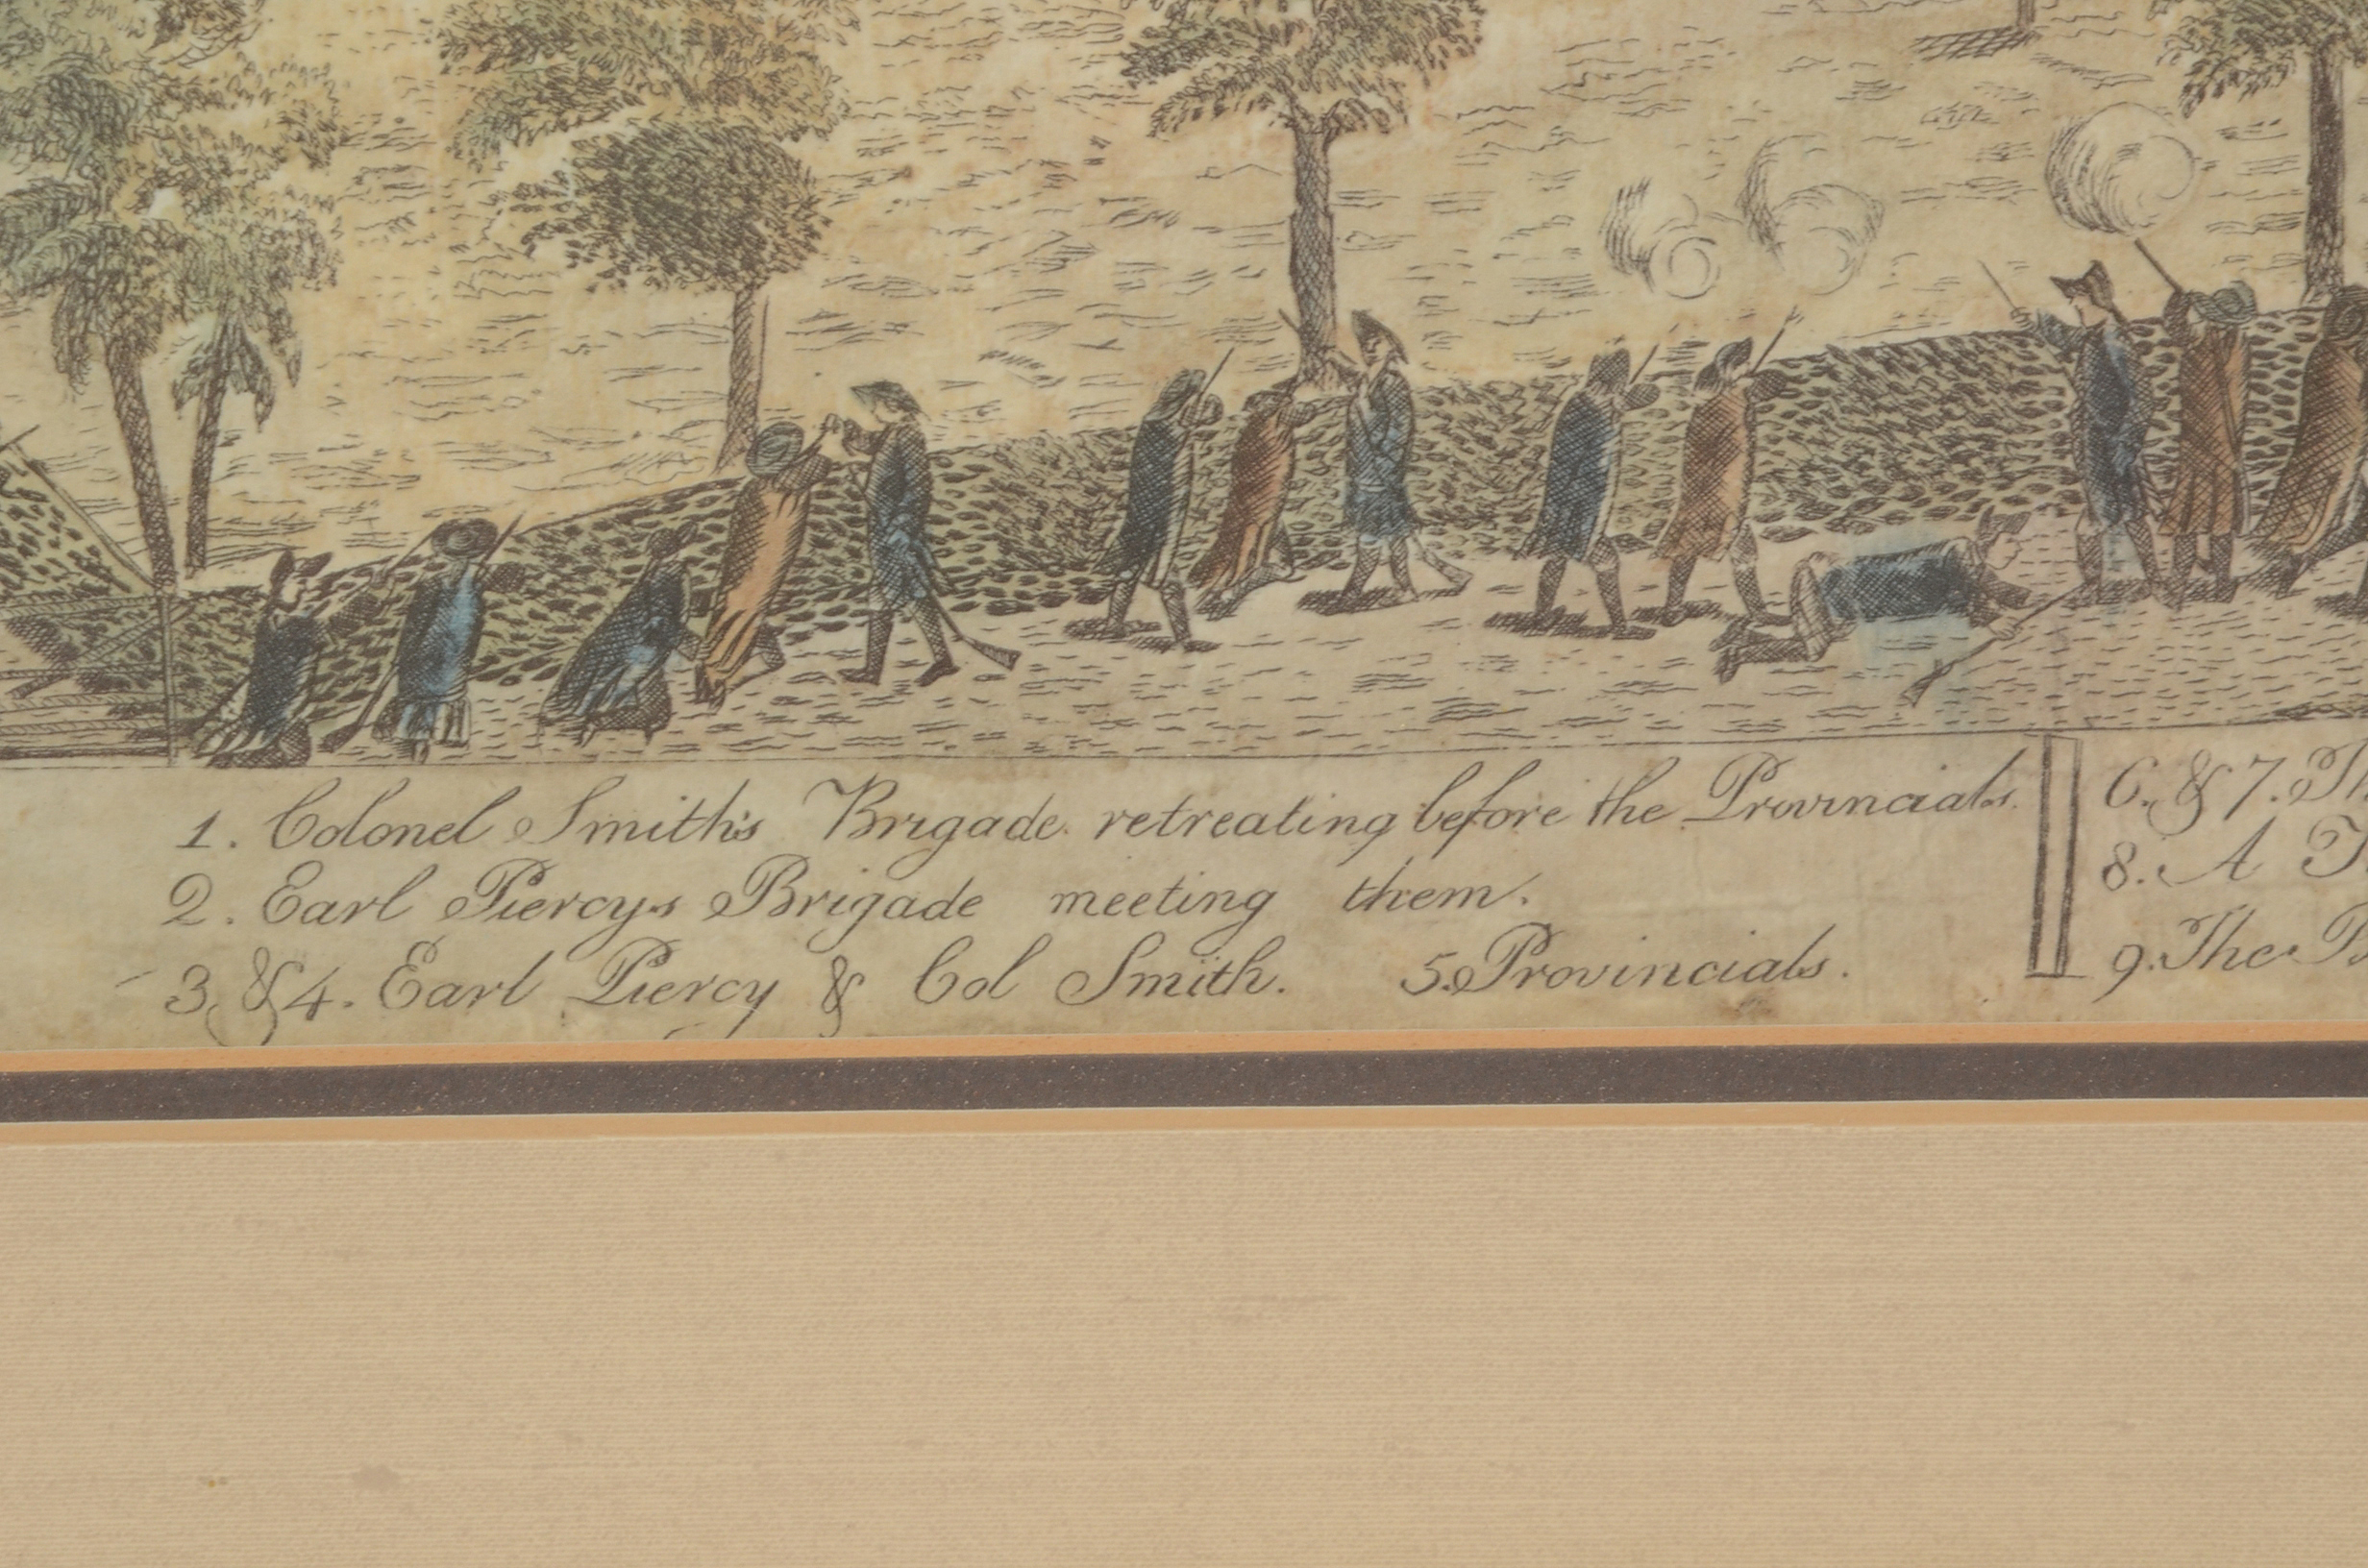 1. Colonel Smith's Brigade retreating before the Provincials.
2. Earl Piercy's Brigade meeting them.
3 & 4. Earl Piercy & Col Smith. 5. Provincials.
6. & 7. Th
8. A
9. The